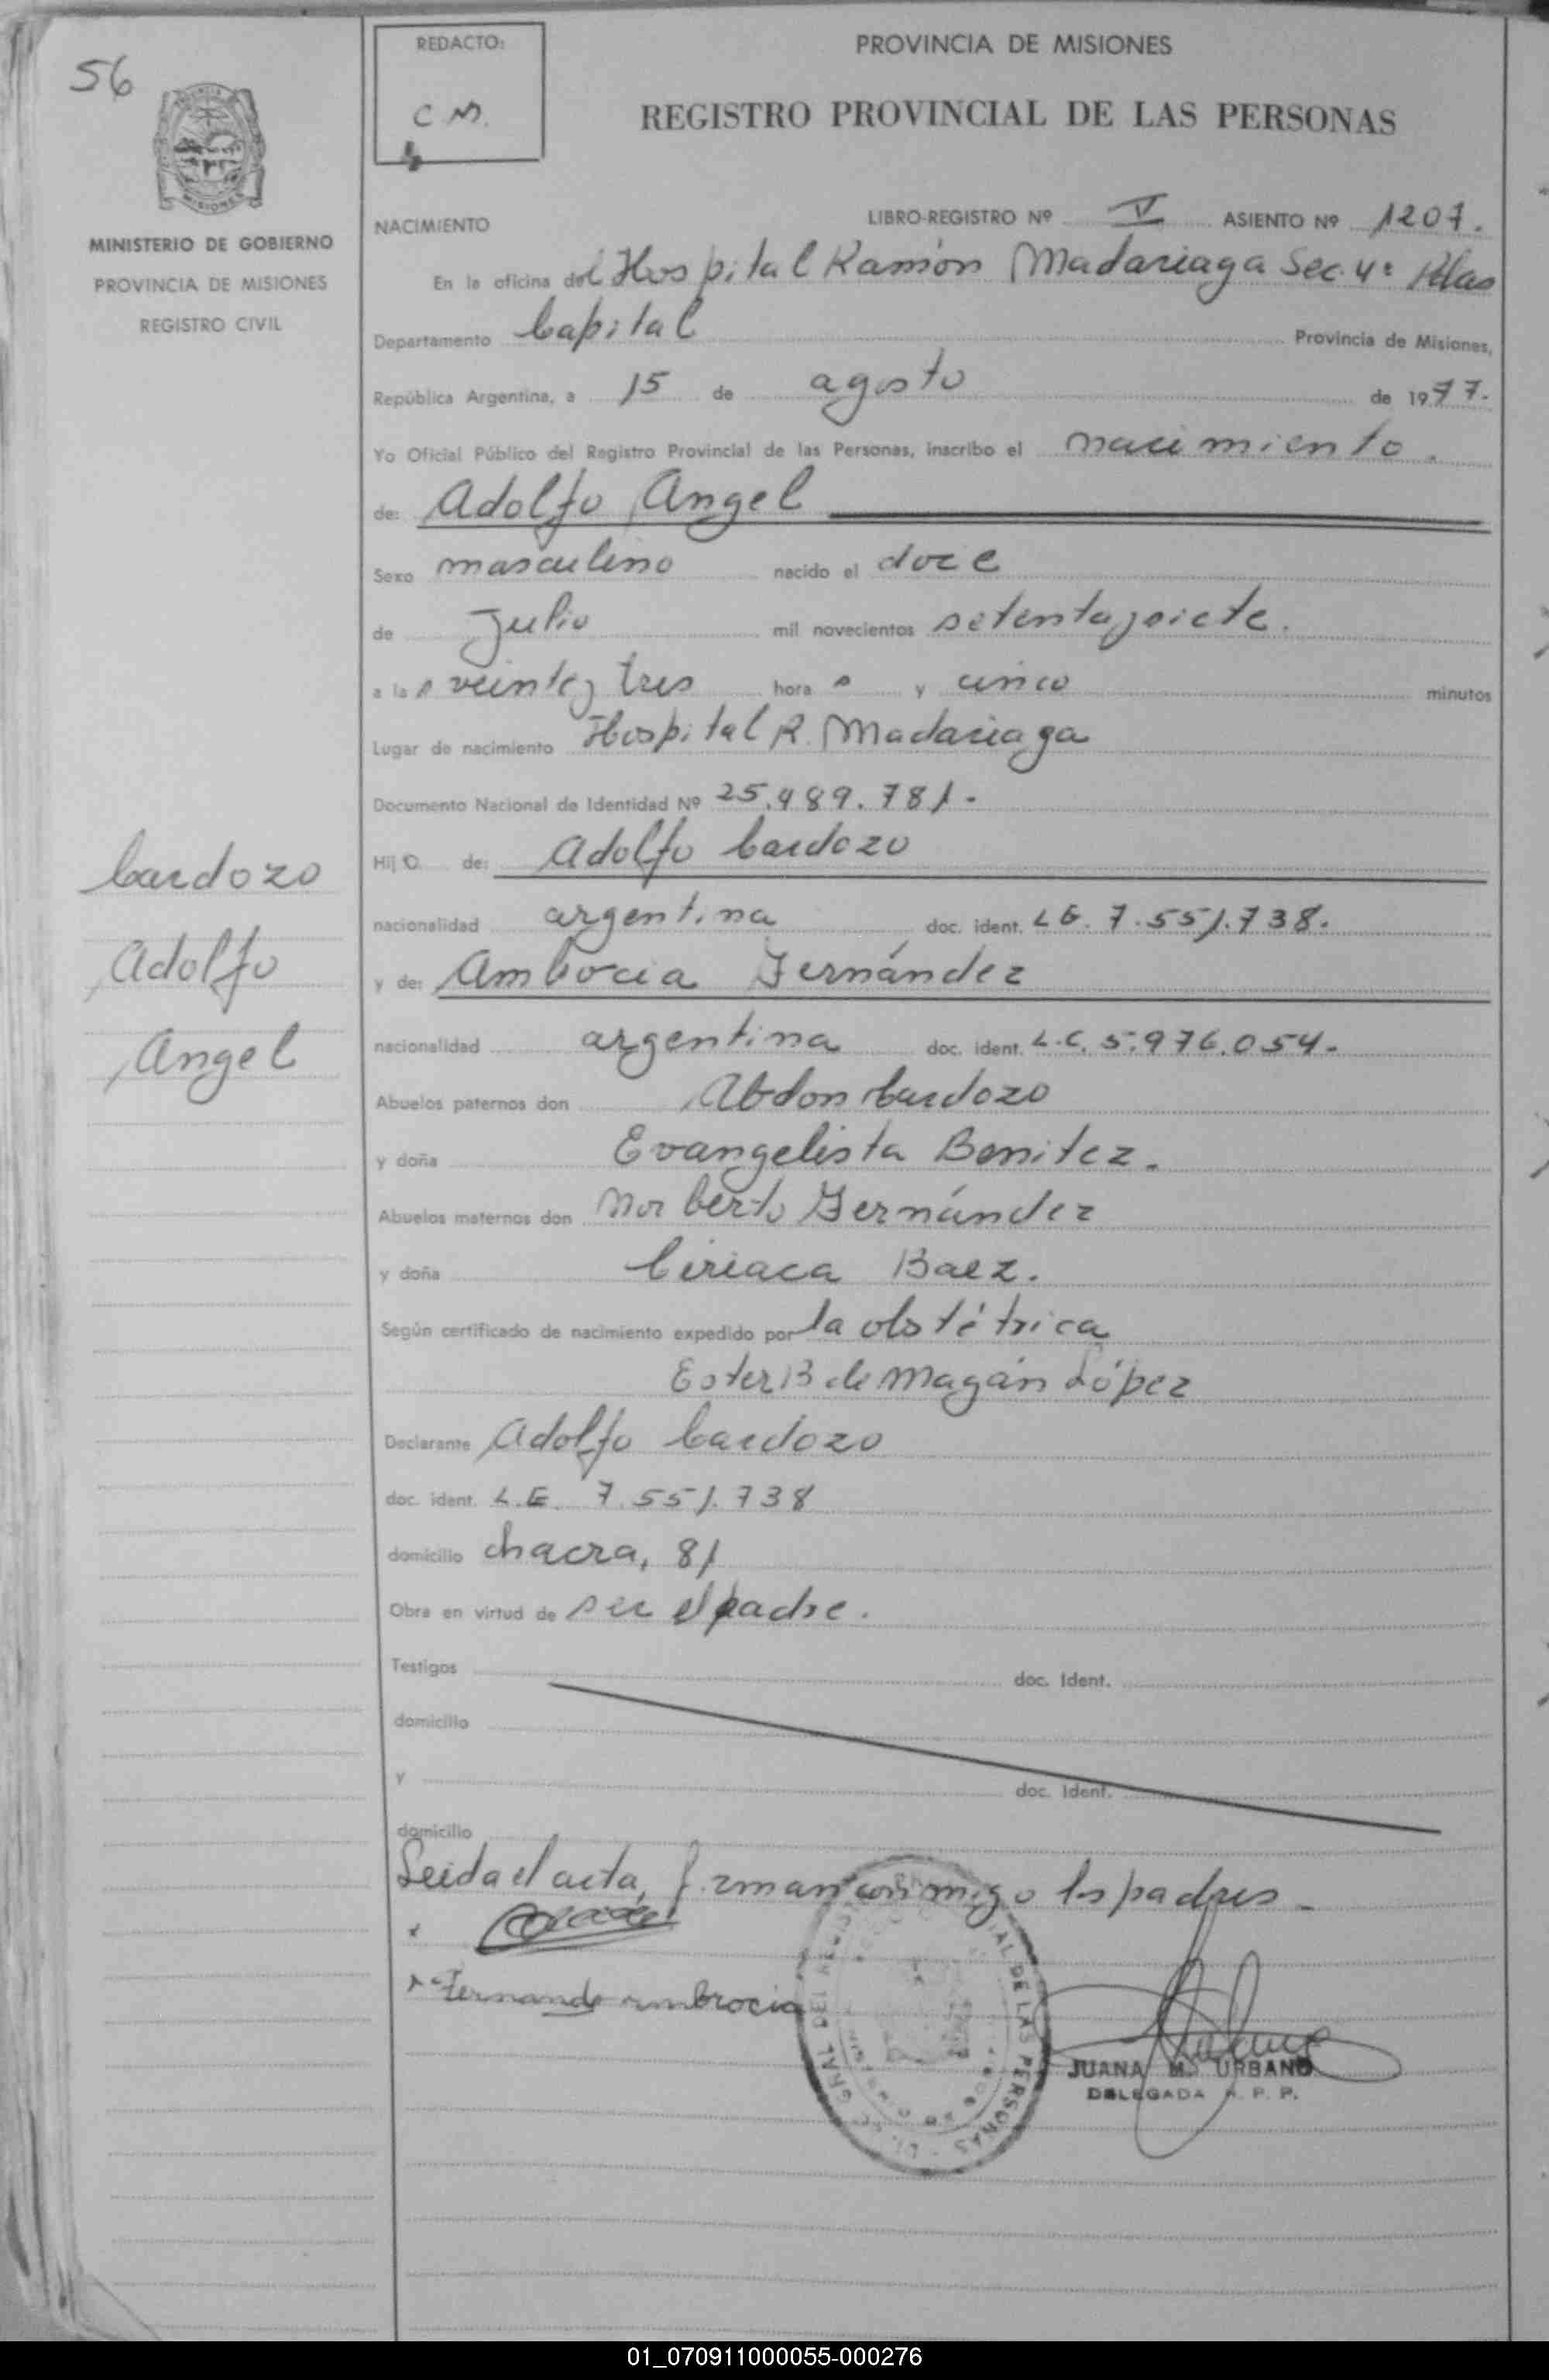 56
REDACTO:
C M.
PROVINCIA DE MISIONES
REGISTRO PROVINCIAL DE LAS PERSONAS
MISIONES
MINISTERIO DE GOBIERNO
PROVINCIA DE MISIONES
REGISTRO CIVIL
NACIMIENTO LIBRO-REGISTRO Nº V ASIENTO Nº 1207.
En la oficina del Hospital Ramón Madariaga Sec. 4ª Pdas
Departamento Capital Provincia de Misiones,
República Argentina, a 15 de agosto de 1977.
Yo Oficial Público del Registro Provincial de las Personas, inscribo el nacimiento.
de: Adolfo Angel
Sexo masculino nacido el doce
de Julio mil novecientos setenta y siete.
a las veinte y tres horas y cinco minutos
Lugar de nacimiento Hospital R. Madariaga
Documento Nacional de Identidad Nº 25.489.781.
Hijo de: Adolfo Cardozo
nacionalidad argentina doc. ident. LE. 7.551.738.
y de: Ambocia Fernández
nacionalidad argentina doc. ident. L.C. 5.976.054.
Abuelos paternos don Abdon Cardozo
y doña Evangelista Benitez.
Abuelos maternos don Norberto Fernández
y doña Ciriaca Baez.
Según certificado de nacimiento expedido por la obstétrica
Ester B de Magán López
Declarante Adolfo Cardozo
doc. ident. L.E. 7.551.738
domicilio chacra, 81
Obra en virtud de ser el padre.
Testigos doc. Ident.
domicilio
y doc. Ident.
domicilio
Leida el acta, firman conmigo los padres
Fernando ambrocia
JUANA M. URBANO
DELEGADA R. P. P.
DE LAS PERSONAS
Cardozo
Adolfo
Angel
01_070911000055-000276